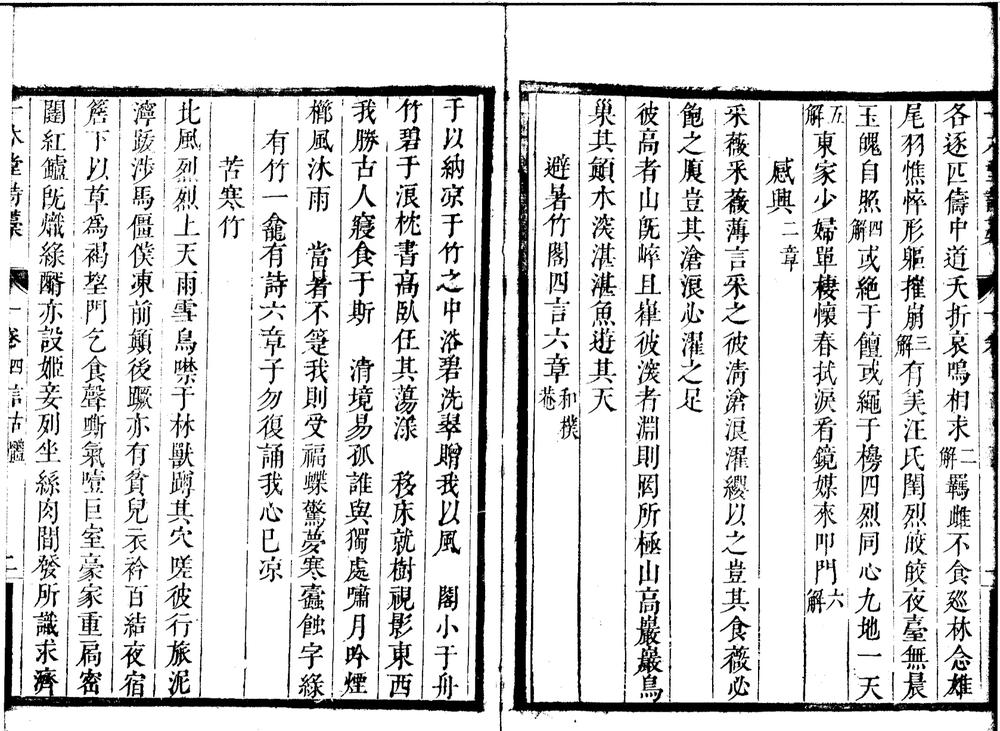 各逐匹儔中道夭折哀鳴相求二解羈雌不食廵林念雄
尾羽憔悴形軀摧崩三解有美汪氏閨烈皎皎夜臺無晨
玉魄自照四解或絶于饘或繩于榜四烈同心九地一天
五解東家少婦單棲懷春拭淚看鏡媒來叩門六解
感興二章
采薇采薇薄言采之彼淸滄浪濯纓以之豈其食薇必
飽之腹豈其滄浪心濯之足
彼高者山旣崒且嵂彼深者淵則罔所極山高巖巖鳥
巢其顛水深湛湛魚遊其天
避暑竹閣四言六章和樸巷
于以納凉于竹之中浴碧洗翠贈我以風　閣小于舟
竹碧于浪枕書高臥任其蕩漾　移床就樹視影東西
我勝古人寢食于斯　清境易孤誰與獨處嘯月吟煙
櫛風沐雨　當暑不箑我則受福蝶驚夢寒蠹蝕字綠
有竹一龕有詩六章子勿復誦我心已凉
苦寒竹
北風烈烈上天雨雪鳥噤于林獸蹲其穴嗟彼行旅泥
濘跋涉馬僵僕凍前顛後蹶亦有貧兒衣衿百結夜宿
簷下以草爲褐望門乞食聲嘶氣噎巨室豪家重扄密
闥紅鑪旣熾綠醑亦設姬妾列坐絲肉間發所識求濟
一木堂詩藁　卷一　四言古體　二